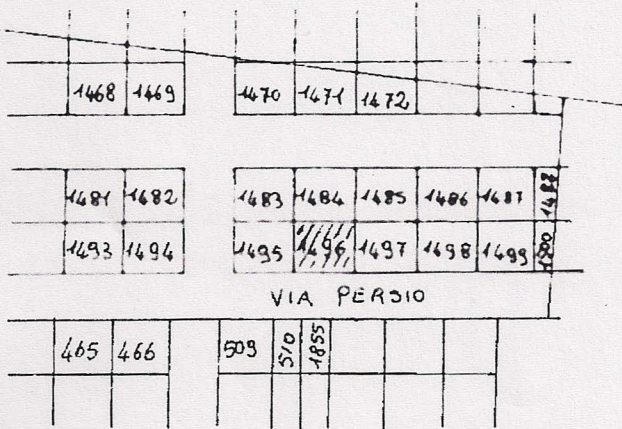 1468 1469 1470 1471 1472
1481 1482 1483 1484 1485 1486 1487 1488
1493 1494 1495 1496 1497 1498 1499 1500
VIA PERSIO
465 466 509 510 1855